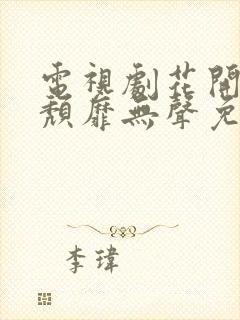 電視劇花開
頹靡無聲免
李瑋